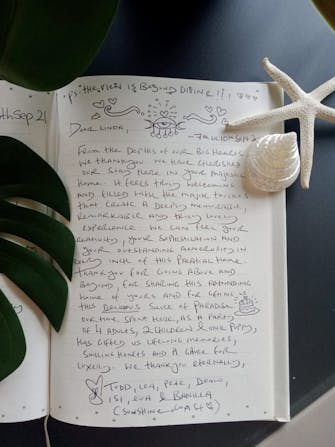 PS: THE VIEW IS BEYOND DIVINE!!
9th Sep 21
DEAR LINDA,
7th - 10th Sept 21
FROM THE DEPTHS OF OUR BIG HEARTS
WE THANK YOU. WE HAVE CHERISHED
OUR STAY HERE IN YOUR MAJESTIC
HOME. IT FEELS TRULY WELCOMING
AND FILLED WITH THE MAJOR TOUCHES
THAT CREATE A DEEPLY MEMORABLE,
REMARKABLE AND TRULY LOVELY
EXPERIENCE. WE CAN FEEL YOUR
CREATIVITY, YOUR SOPHISTICATION AND
YOUR OUTSTANDING GENEROSITY IN
EVERY INCH OF THIS PRACTICAL HOME.
THANK YOU FOR GIVING ABOVE AND
BEYOND, FOR SHARING THIS ASTOUNDING
HOME OF YOURS AND FOR GIVING US
THIS DELICIOUS SLICE OF PARADISE.
OUR TIME SPENT HERE, AS A PARTY
OF 4 ADULTS, 2 CHILDREN & ONE PUPPY,
HAS GIFTED US LIFELONG MEMORIES,
SMILING HEARTS AND A CHEER FOR
LIFE. WE THANK YOU ETERNALLY,
TODD, LEA, PETE,
& BANILLA
(SUNSHINE